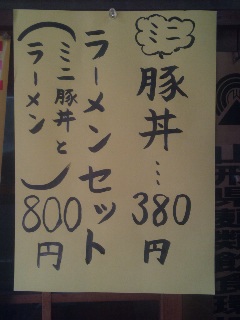 ミニ豚丼…380円
ラーメンセット800円
（ミニ豚丼と
ラーメン）